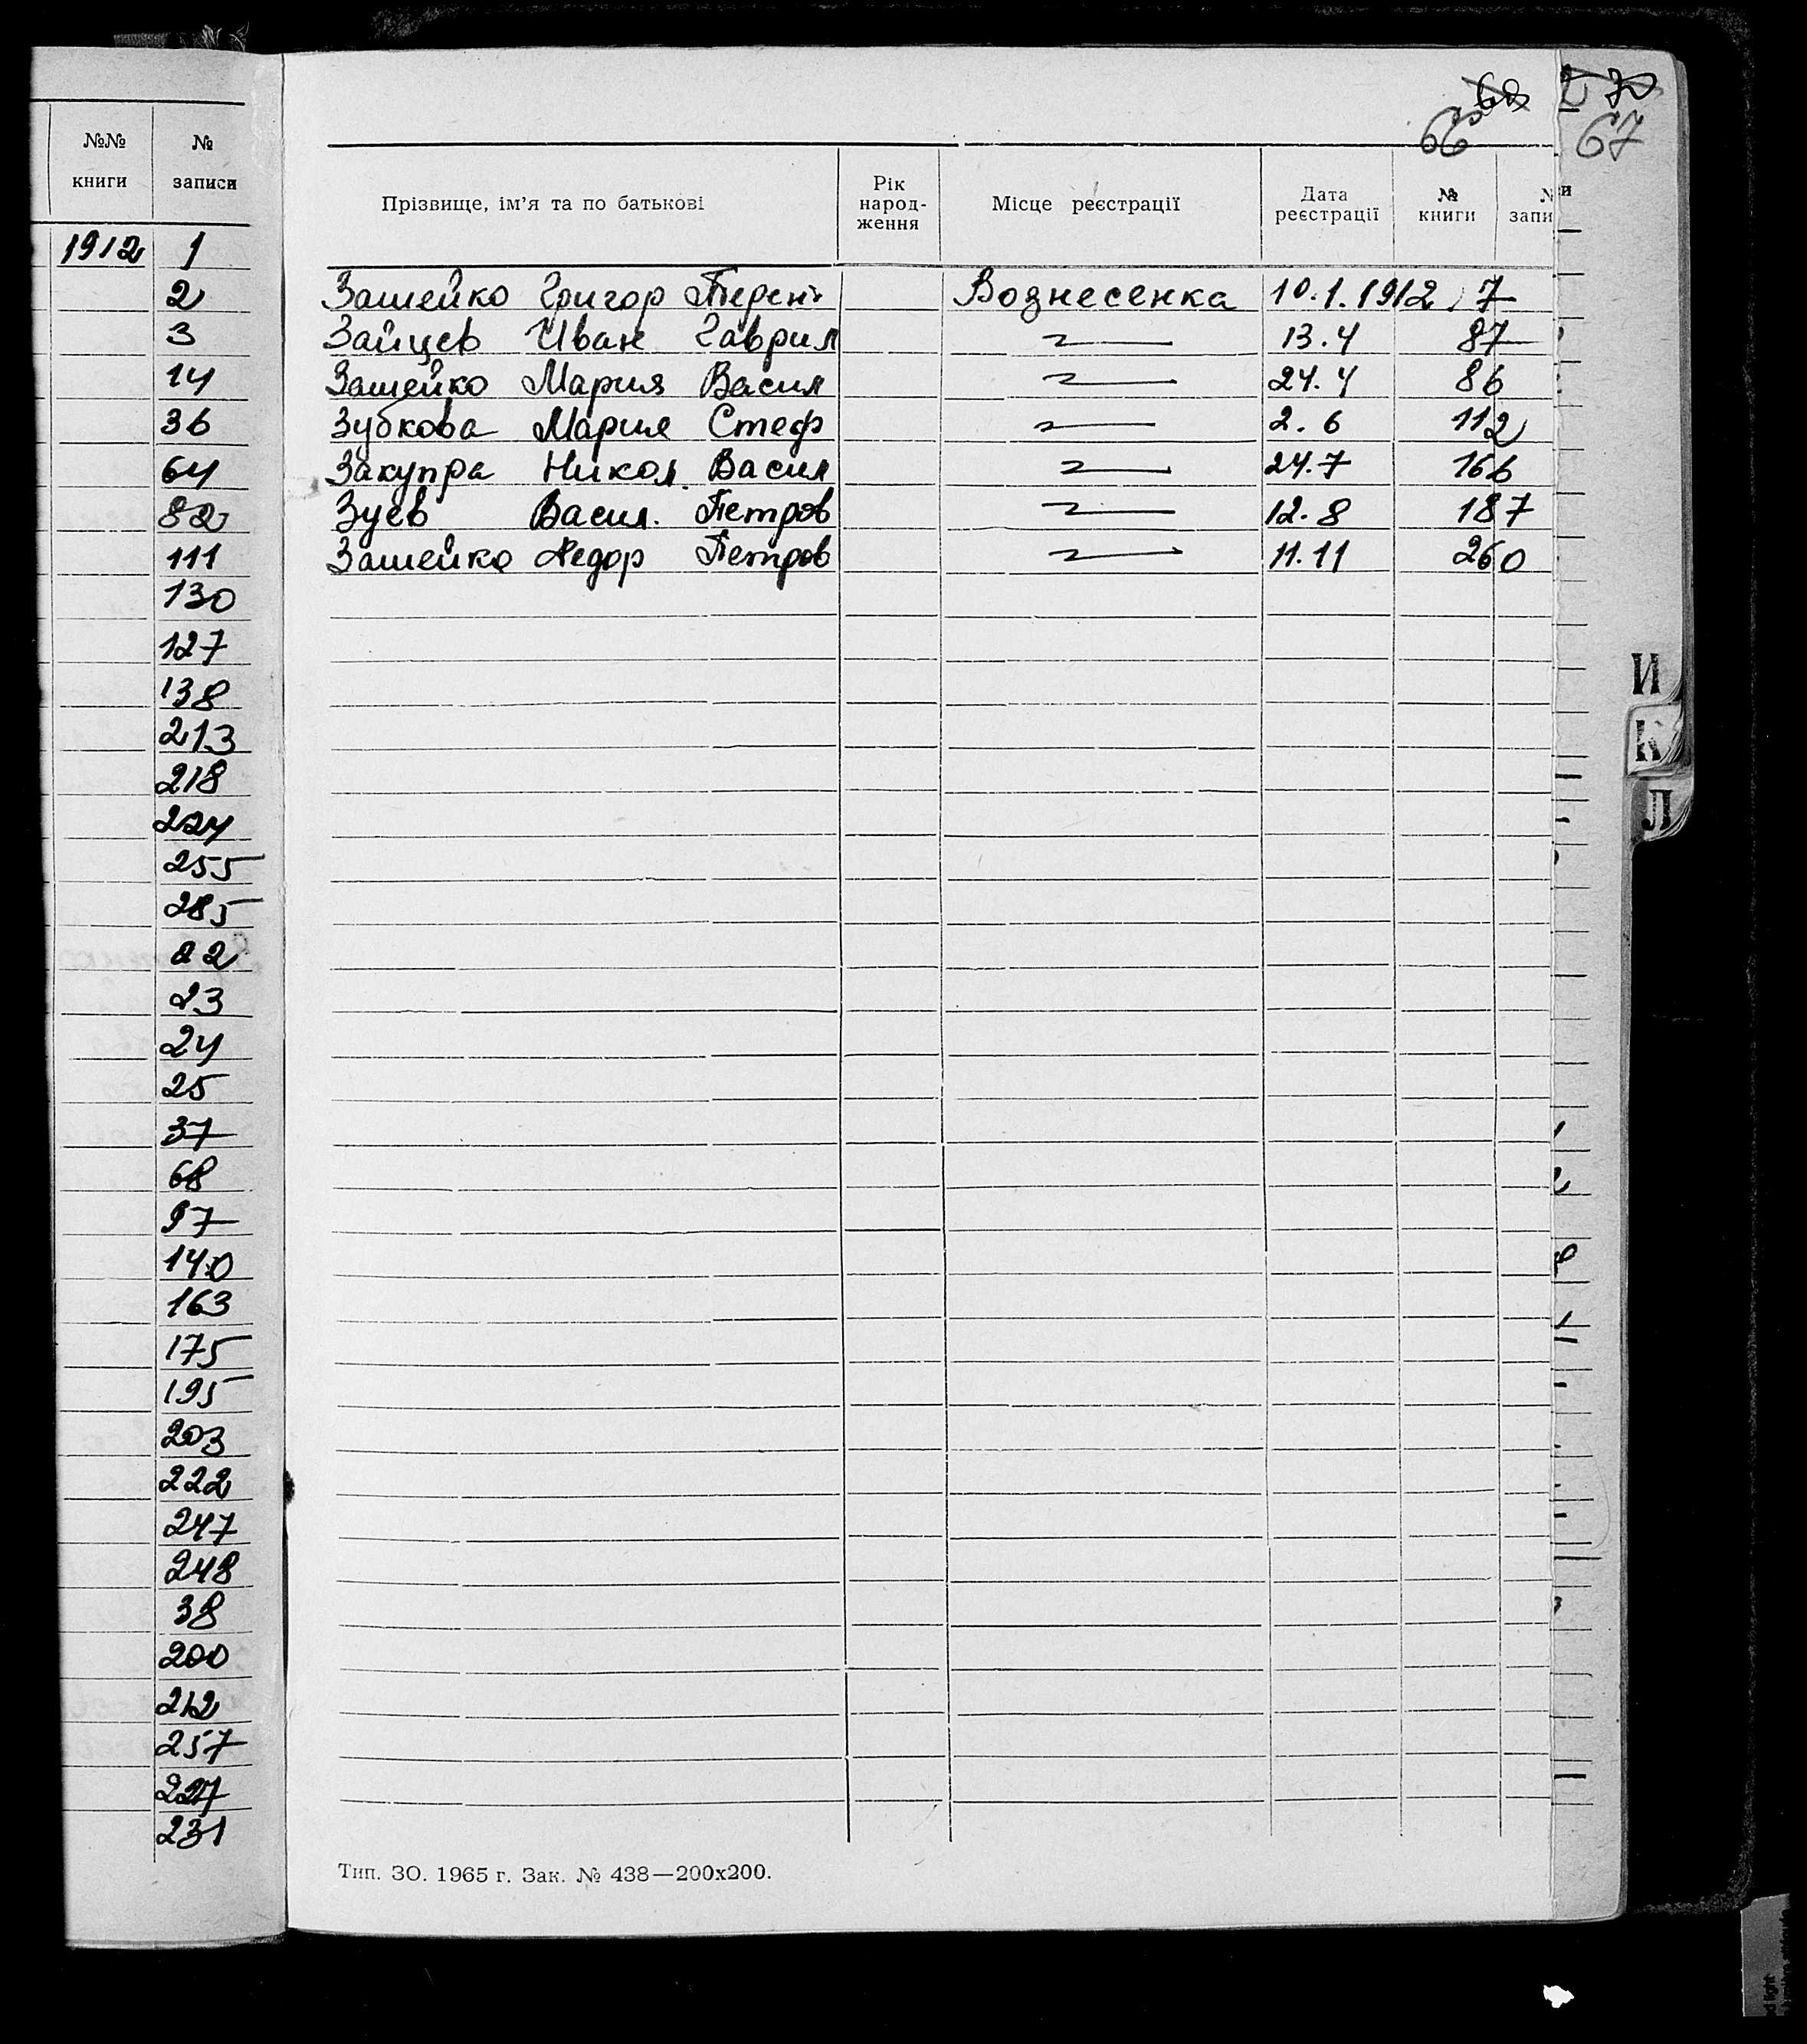 №№ книги № записи
1912 1
2
3
14
36
64
82
111
130
127
138
213
218
224
255
285
22
23
24
25
37
68
97
140
163
175
195
203
222
247
248
38
200
212
257
227
231
70
66 67
Прізвище, ім'я та по батькові Рік народ-ження Місце реєстрації Дата реєстрації № книги № запи
Зашейко Григор Терен Вознесенка 10.1.1912 7
Зайцев Иван Гаврил 13.4 87
Зашейко Мария Васил 24.4 86
Зубкова Мария Стеф 2.6 112
Закупра Никол. Васил 24.7 166
Зуев Васил. Петров 12.8 187
Зашейко Федор Петров 11.11 260
И
К
Л
Тип. ЗО. 1965 г. Зак. № 438—200х200.